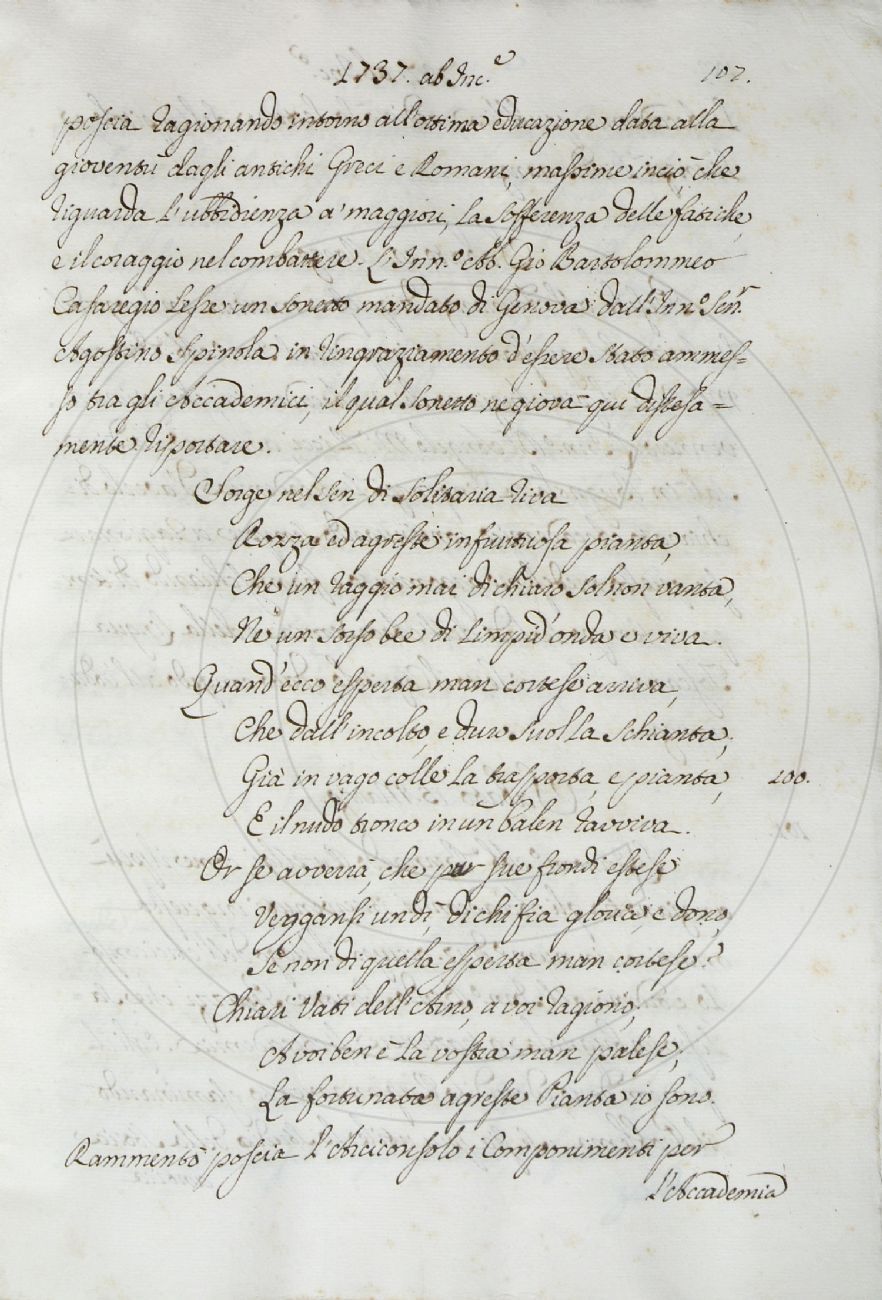 1737. ab Inc.e 107.
poscia ragionando intorno all'ottima educazione data alla
gioventù dagli antichi Greci e Romani, massime in ciò, che
riguarda l'ubbidienza a' maggiori, la sofferenza delle fatiche,
e il coraggio nel combattere. L'Inn.o Ab. Gio Bartolommeo
Casaregio lesse un sonetto mandato di Genova dall'Inn.o Sen.r
Agostino Spinola in ringraziamento d'essere stato ammes=
so tra gli Accademici, il qual sonetto ne giova qui distesa=
mente riportare.
Sorge nel sen di solitaria riva
Rozza ed agreste infruttuosa pianta,
Che un raggio mai di chiaro sol non vanta,
Nè un sorso bee di limpid'onda e viva.
Quand'ecco esperta man cortese arriva,
Che dall'incolto, e duro suol la schianta;
Già in vago colle la trasporta, e pianta, 100.
E il nudo tronco in un balen ravviva.
Or se avverrà, che pur sue frondi estese
Veggansi un dì, di chi fia gloria, e dono,
Se non di quella esperta man cortese?
Chiari Vati dell'Arno, a voi ragiono;
A voi ben è la vostra man palese;
La fortunata agreste Pianta io sono.
Rammentò poscia l'Arciconsolo i Componimenti per
l'Accademia